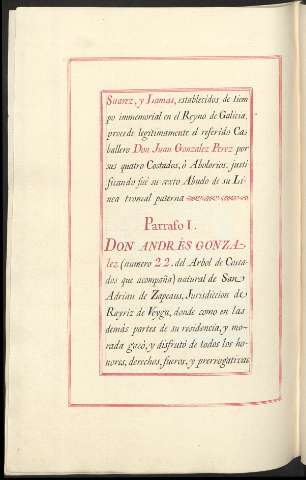 Suarez, y Llamas, establecidos de tiem
po immemorial en el Reyno de Galicia,
procede legitimamente el referido Ca
ballero Don Juan Gonzalez Perez por
sus quatro Costados, ò Abolorios, justi
ficando fué su sexto Abuelo de su Li
nea troncal paterna
Parrafo I.
DON ANDRÈS GONZA
lez (numero 22. del Arbol de Costa
dos que acompaña) natural de San
Adrian de Zapeaus, Jurisdiccion de
Rayriz de Veyga, donde como en las
demàs partes de su residencia, y mo
rada gozó, y disfrutó de todos los ho
nores, derechos, fueros, y prerrogativas